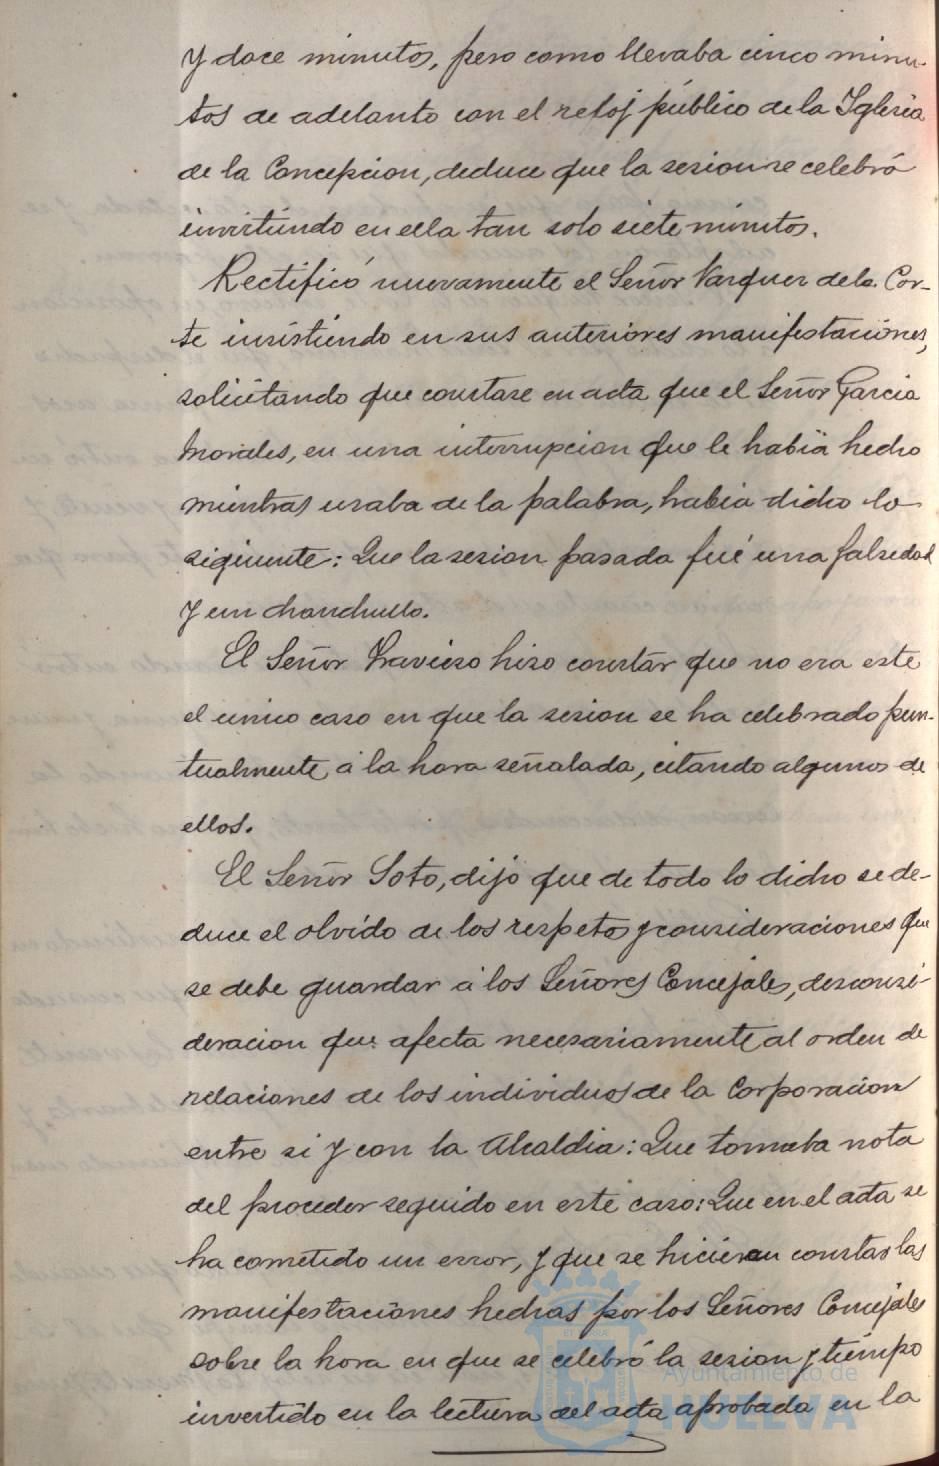 y doce minutos, pero como llevaba cinco minu-
tos de adelanto con el reloj público de la Iglesia
de la Concepcion, deduce que la sesion se celebró
invirtiendo en ella tan solo siete minutos.
Rectificó nuevamente el Señor Vazquez de la Cor-
te insistiendo en sus anteriores manifestaciones,
solicitando que constase en acta que el Señor Garcia
Morales, en una interrupcion que le habia hecho
mientras usaba de la palabra, habia dicho lo
siguiente: Que la sesion pasada fué una falsedad
y un chanchullo.
El Señor Travieso hizo constar que no era este
el unico caso en que la sesion se ha celebrado pun-
tualmente á la hora señalada, citando algunos de
ellos.
El Señor Soto, dijo que de todo lo dicho se de-
duce el olvido de los respetos y consideraciones que
se debe guardar á los Señores Concejales, desconsi-
deracion que afecta necesariamente al orden de
relaciones de los individuos de la Corporacion
entre si y con la Alcaldia: Que tomaba nota
del proceder seguido en este caso: Que en el acta se
ha cometido un error, y que se hicieran constar las
manifestaciones hechas por los Señores Concejales
sobre la hora en que se celebró la sesion y tiempo
invertido en la lectura del acta aprobada en la
Ayuntamiento de
HUELVA